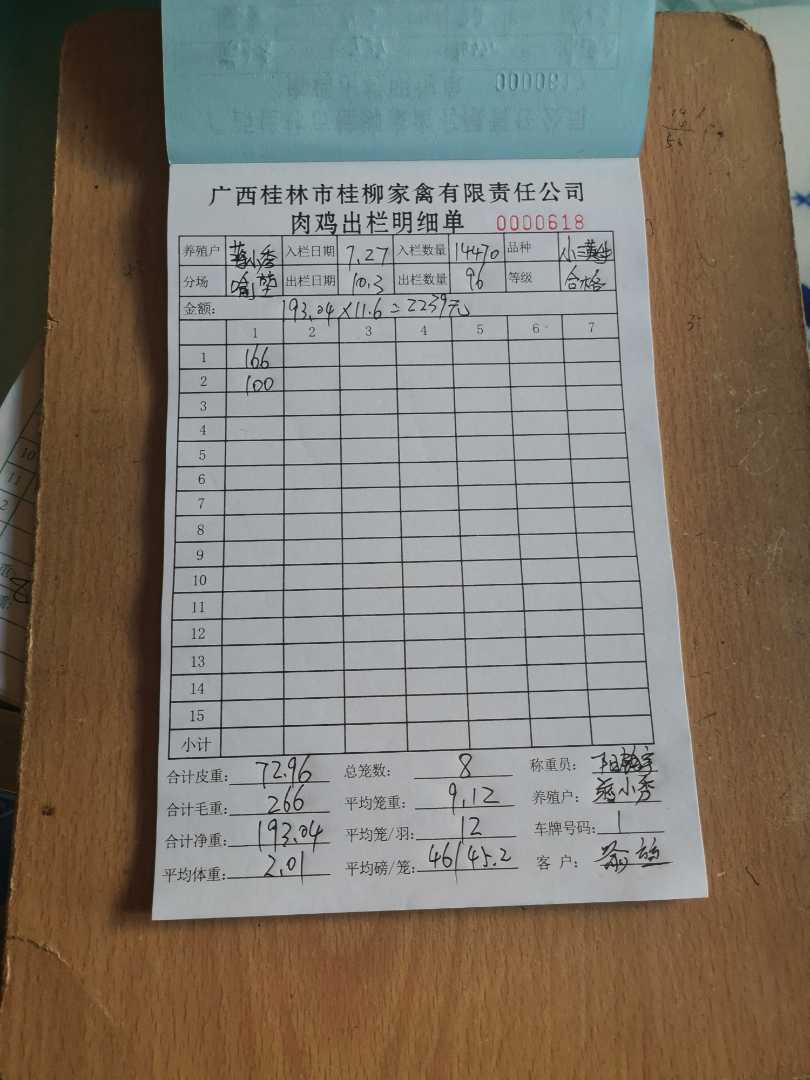 广西桂林市桂柳家禽有限责任公司
肉鸡出栏明细单 0000618
养殖户 蒋小秀 入栏日期 7.27 入栏数量 14470 品种 小三黄
分场 出栏日期 10.3 出栏数量 96 等级 合格
金额: 193.04×11.6=2239元
1 2 3 4 5 6 7
1 166
2 100
3
4
5
6
7
8
9
10
11
12
13
14
15
小计
合计皮重: 72.96 总笼数: 8 称重员:
合计毛重: 266 平均笼重: 9.12 养殖户: 蒋小秀
合计净重: 193.04 平均笼/羽: 12 车牌号码: 1
平均体重: 2.01 平均磅/笼: 46/45.2 客户: